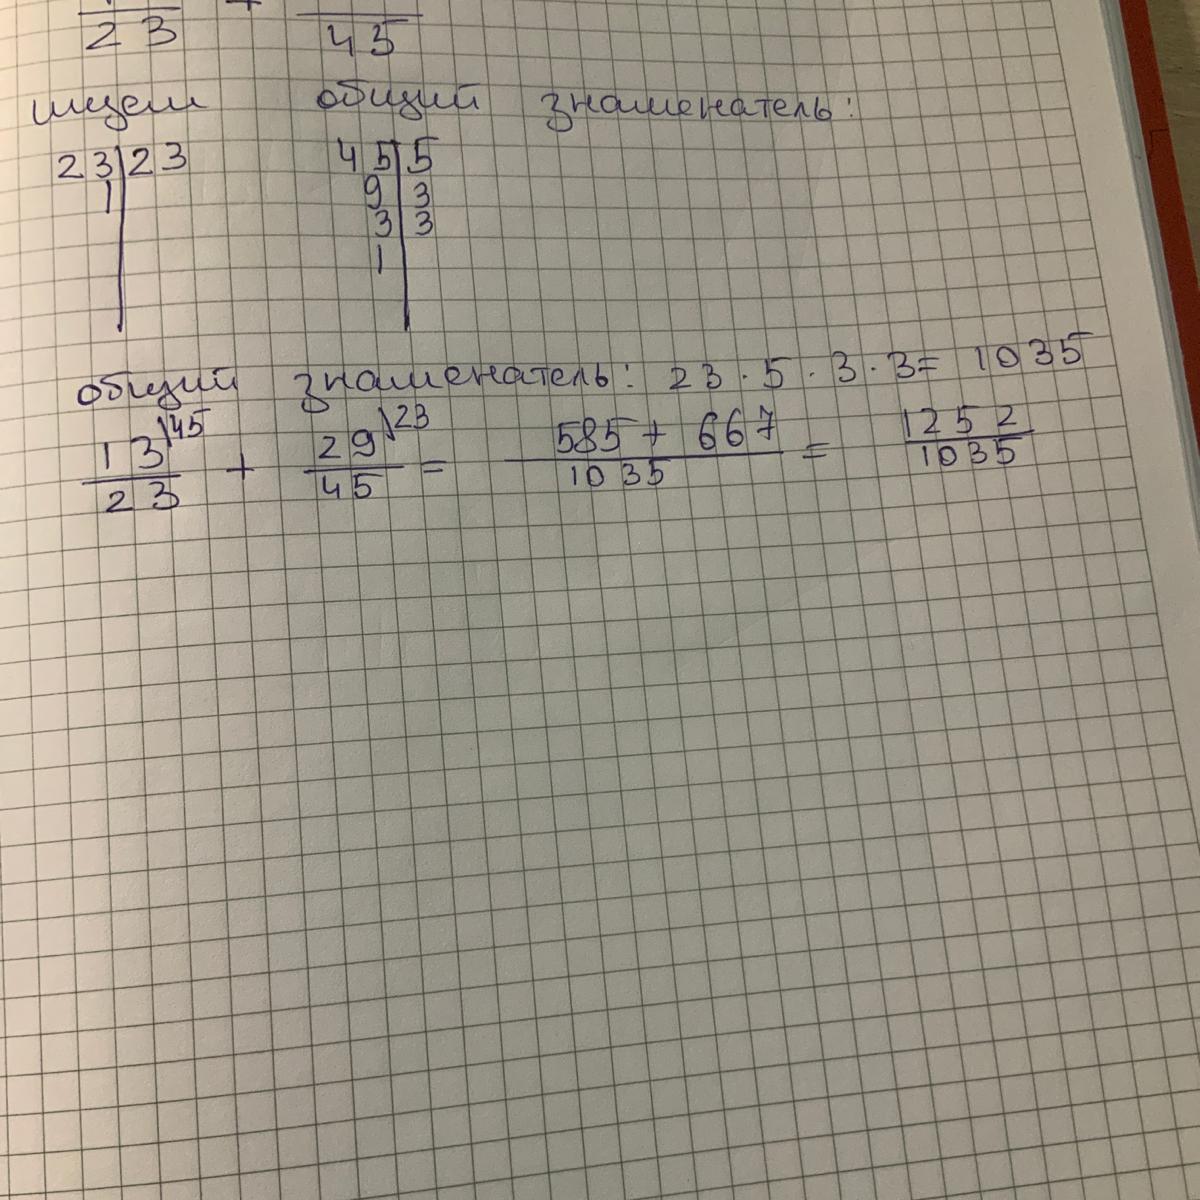 23 + 45
ищем общий знаменатель:
23|23 45|5
1| 9|3
3|3
1|
общий знаменатель: 23 · 5 · 3 · 3 = 1035
13\45 / 23 + 29\23 / 45 = 585 + 667 / 1035 = 1252 / 1035